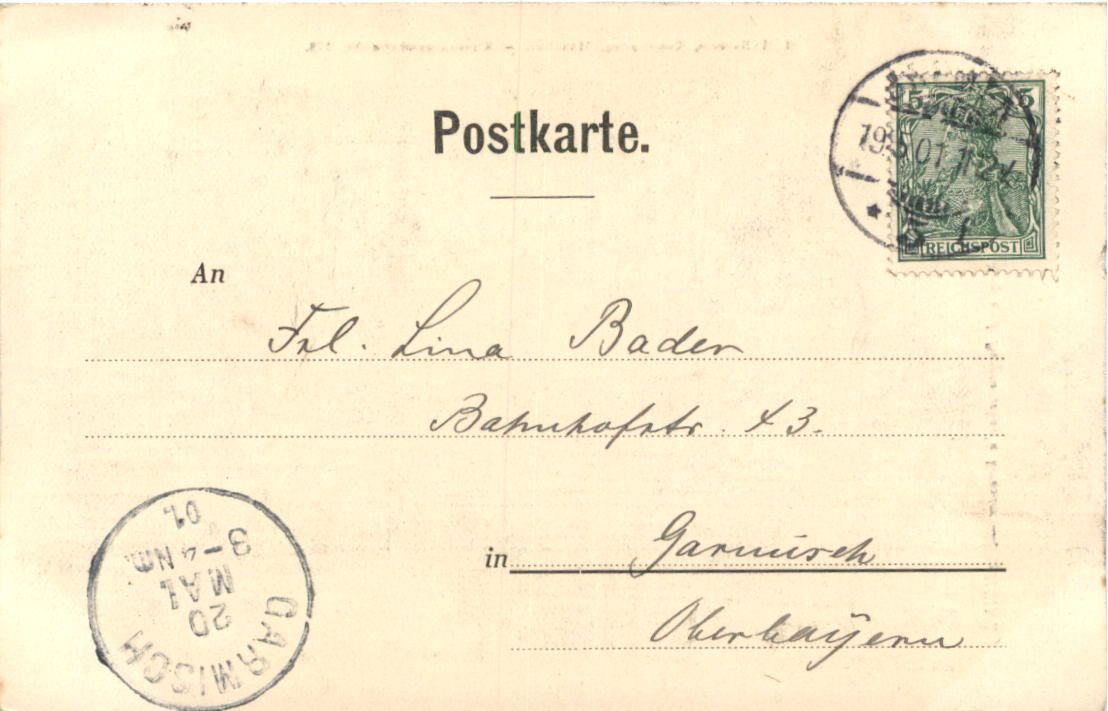 Postkarte.
5 5
19.5.01.11-12V
REICHSPOST
An
Frl. Lina Bader
Bahnhofstr. 43.
in Garmisch
Oberbayern
GARMISCH
20
MAI
3-4 Nm.
01.